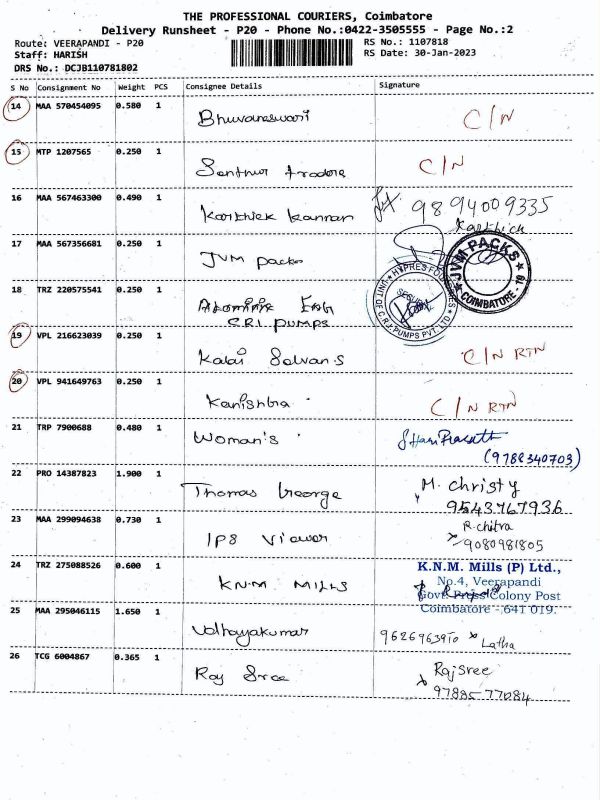 THE PROFESSIONAL COURIERS, Coimbatore
Delivery Runsheet - P20 - Phone No.:0422-3505555 - Page No.:2
Route: VEERAPANDI - P20 RS No.: 1107818
Staff: HARISH RS Date: 30-Jan-2023
DRS No.: DCJB110781802
S No Consignment No Weight PCS Consignee Details Signature
14 MAA 570454095 0.580 1 Bhuvaneswari C/N
15 MTP 1207565 0.250 1 C/N
16 MAA 567463300 0.490 1 Karthick Kannan 9894009335
Karthick
17 MAA 567356681 0.250 1 JVM packs
JVM PACKS
COIMBATORE - 19
18 TRZ 220575541 0.250 1
C.R.I. PUMPS
UNIT OF C.R.I. PUMPS PVT. LTD
19 VPL 216623039 0.250 1 Kalai Selvan S C/N RTN
20 VPL 941649763 0.250 1 Kanishka C/N RTN
21 TRP 7900688 0.480 1 Woman's S Hari Prasath
(9788340703)
22 PRO 14387823 1.900 1 Thomas George M. Christy
9543767936
23 MAA 299094638 0.730 1 R. chitra
9080981805
24 TRZ 275088526 0.600 1 K.N.M MILLS K.N.M. Mills (P) Ltd.,
No.4, Veerapandi
Govt. Press Colony Post
Coimbatore - 641 019.
25 MAA 295046115 1.650 1 9626963910 Latha
26 TCG 6004867 0.365 1 Raj Sree Rajsree